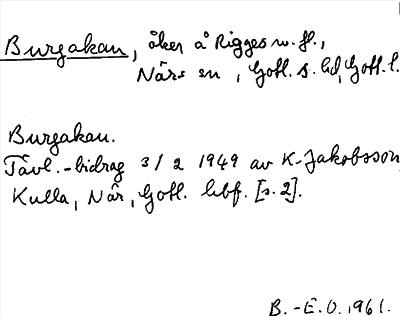 Burgakan, åker å Rigges w. fl.,
Närs sn, Gotl. s. hd, Gotl. l.
Burgakan.
Tävl.-bidrag 3/2 1949 av K-Jakobsson,
Kulla, När, Gotl. hbf. [s. 2].
B.-E.O. 1961.